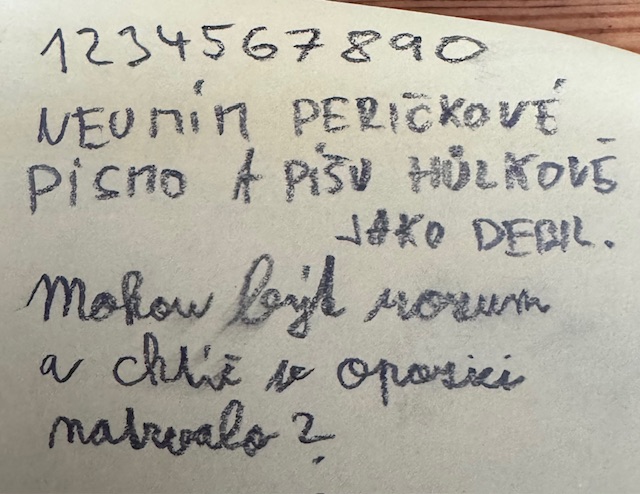 1234567890
NEUMÍM PERIČKOVÉ
PÍSMO A PÍŠU HŮLKOVĚ
JAKO DEBIL.
Mohou být rozum
a chtíč v opozici
natrvalo?